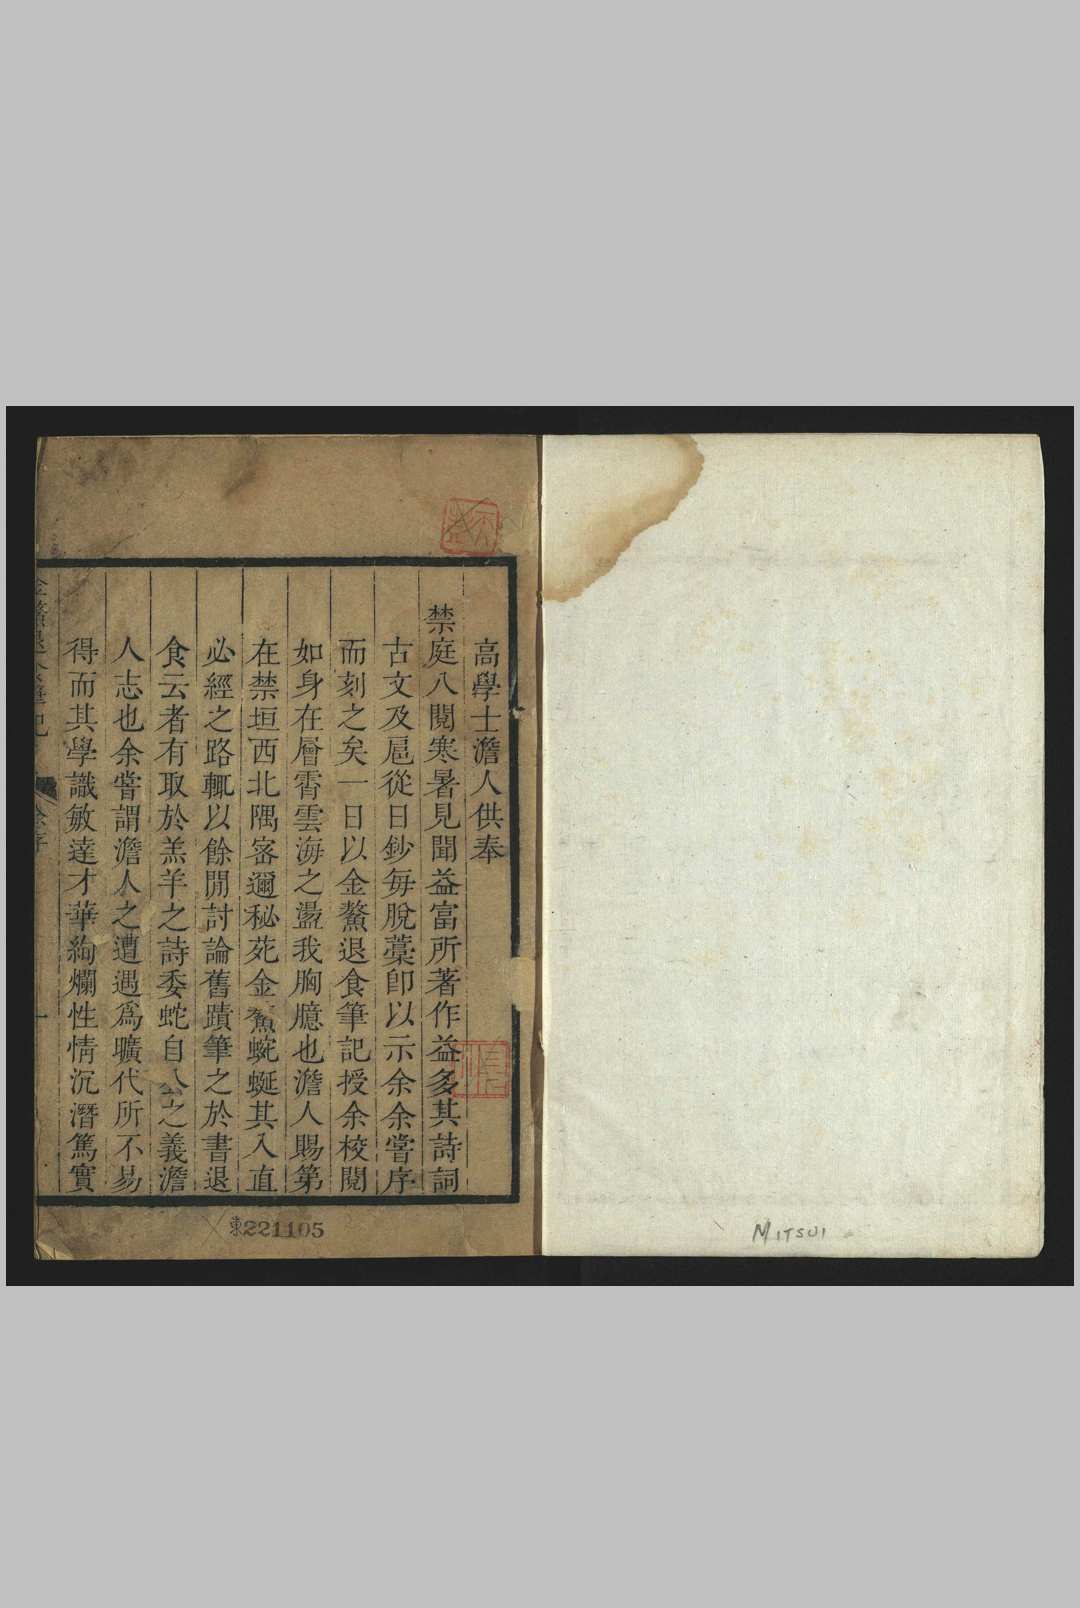 高學士澹人供奉
禁庭八閱寒暑見聞益富所著作益多其詩詞
古文及扈從日鈔每脫藁卽以示余余嘗序
而刻之矣一日以金鰲退食筆記授余校閱
如身在層霄雲海之盪我胸臆也澹人賜第
在禁垣西北隅宻邇秘苑金鰲蜿蜒其入直
必經之路輒以餘閒討論舊蹟筆之於書退
食云者有取於羔羊之詩委蛇自公之義澹
人志也余嘗謂澹人之遭遇爲曠代所不易
得而其學識敏達才華絢爛性情沉潛篤實
東221105
MITSUI